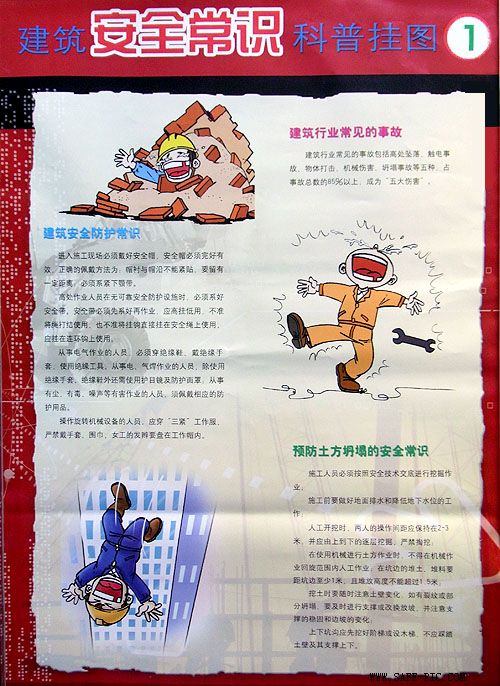 建筑安全常识科普挂图 1
建筑行业常见的事故
建筑行业常见的事故包括高处坠落、触电事
故、物体打击、机械伤害、坍塌事故等五种，占
事故总数的85%以上，成为“五大伤害”。
建筑安全防护常识
进入施工现场必须戴好安全帽，安全帽必须完好有
效。正确的佩戴方法为：帽衬与帽沿不能紧贴，要留有
一定距离，必须系紧下颚带。
高处作业人员在无可靠安全防护设施时，必须系好
安全带。安全带必须先系好再作业，应高挂低用，不准
将绳打结使用，也不准将挂钩直接挂在安全绳上使用，
应挂在连环钩上使用。
从事电气作业的人员，必须穿绝缘鞋、戴绝缘手
套，使用绝缘工具。从事电、气焊作业的人员，除使用
绝缘手套、绝缘鞋外还需使用护目镜及防护面罩。从事
有尘、有毒、噪声等有害作业的人员，须佩戴相应的防
护用品。
操作旋转机械设备的人员，应穿“三紧”工作服，
严禁戴手套、围巾，女工的发辫要盘在工作帽内。
预防土方坍塌的安全常识
施工人员必须按照安全技术交底进行挖掘作
业。
施工前要做好地面排水和降低地下水位的工
作。
人工开挖时，两人的操作间距应保持在2-3
米，并应由上到下的逐层挖掘，严禁掏挖。
在使用机械进行土方作业时，不得在机械作
业回旋范围内人工作业；在坑边的堆土、堆料要
距坑边至少1米，且堆放高度不能超过1.5米。
挖土时要随时注意土壁变化，如有裂纹或部
分坍塌，要及时进行支撑或改换放坡，并注意支
撑的稳固和边坡的变化；
上下坑沟应先挖好阶梯或设木梯，不应踩踏
土壁及其支撑上下。